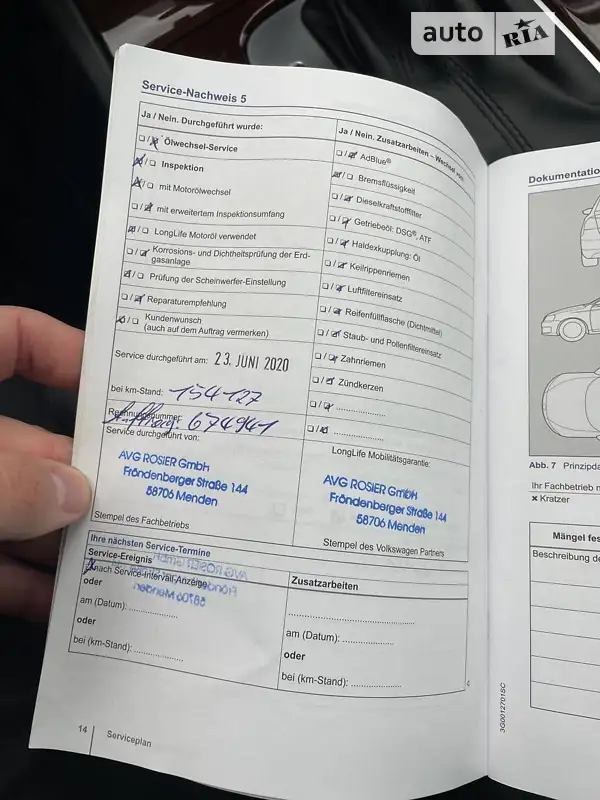 auto RIA
Service-Nachweis 5
Ja / Nein. Durchgeführt wurde:
Ölwechsel-Service
Inspektion
mit Motorölwechsel
mit erweitertem Inspektionsumfang
LongLife Motoröl verwendet
Korrosions- und Dichtheitsprüfung der Erd-
gasanlage
Prüfung der Scheinwerfer-Einstellung
Reparaturempfehlung
Kundenwunsch
(auch auf dem Auftrag vermerken)
Service durchgeführt am: 23. JUNI 2020
bei km-Stand: 154127
Rechnungsnummer:
Auftrag: 674941
Service durchgeführt von:
AVG ROSIER GmbH
Fröndenberger Straße 144
58706 Menden
Stempel des Fachbetriebs
Ja / Nein. Zusatzarbeiten – Wechsel von:
AdBlue®
Bremsflüssigkeit
Dieselkraftstofffilter
Getriebeöl: DSG®, ATF
Haldexkupplung: Öl
Keilrippenriemen
Luftfiltereinsatz
Reifenfüllflasche (Dichtmittel)
Staub- und Pollenfiltereinsatz
Zahnriemen
Zündkerzen
LongLife Mobilitätsgarantie:
AVG ROSIER GmbH
Fröndenberger Straße 144
58706 Menden
Stempel des Volkswagen Partners
Ihre nächsten Service-Termine
Service-Ereignis
nach Service-Intervall-Anzeige
oder
am (Datum):
oder
bei (km-Stand):
Zusatzarbeiten
am (Datum):
oder
bei (km-Stand):
14 Serviceplan
3G0012701SC
Dokumentatio
Abb. 7 Prinzipda
Ihr Fachbetrieb n
× Kratzer
Mängel fes
Beschreibung de